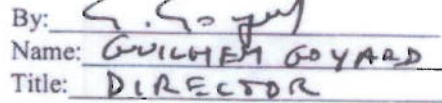 By:
Name: GUILHEM GOYARD
Title: DIRECTOR